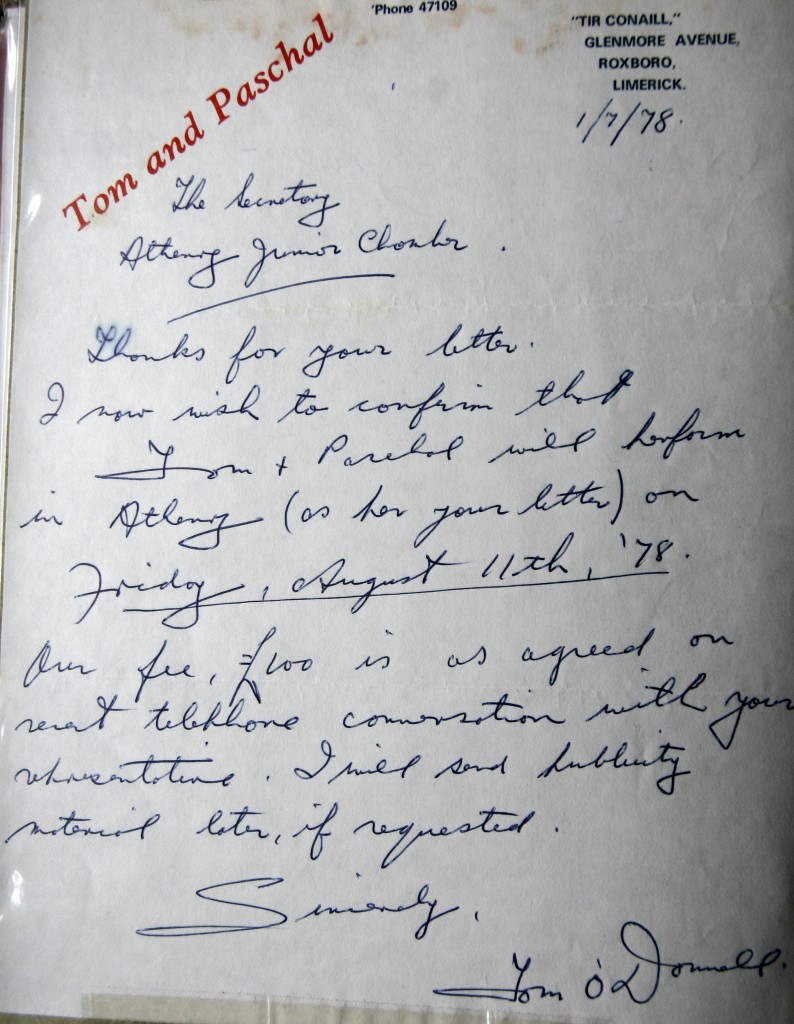 'Phone 47109
"TIR CONAILL,"
GLENMORE AVENUE,
ROXBORO,
LIMERICK.
1/7/78.
Tom and Paschal
The Secretary
Athenry Junior Chamber.
Thanks for your letter.
I now wish to confirm that
Tom + Paschal will perform
in Athenry (as per your letter) on
Friday, August 11th, '78.
Our fee, £100 is as agreed on
recent telephone conversation with your
representative. I will send publicity
material later, if requested.
Sincerely,
Tom O'Donnell.